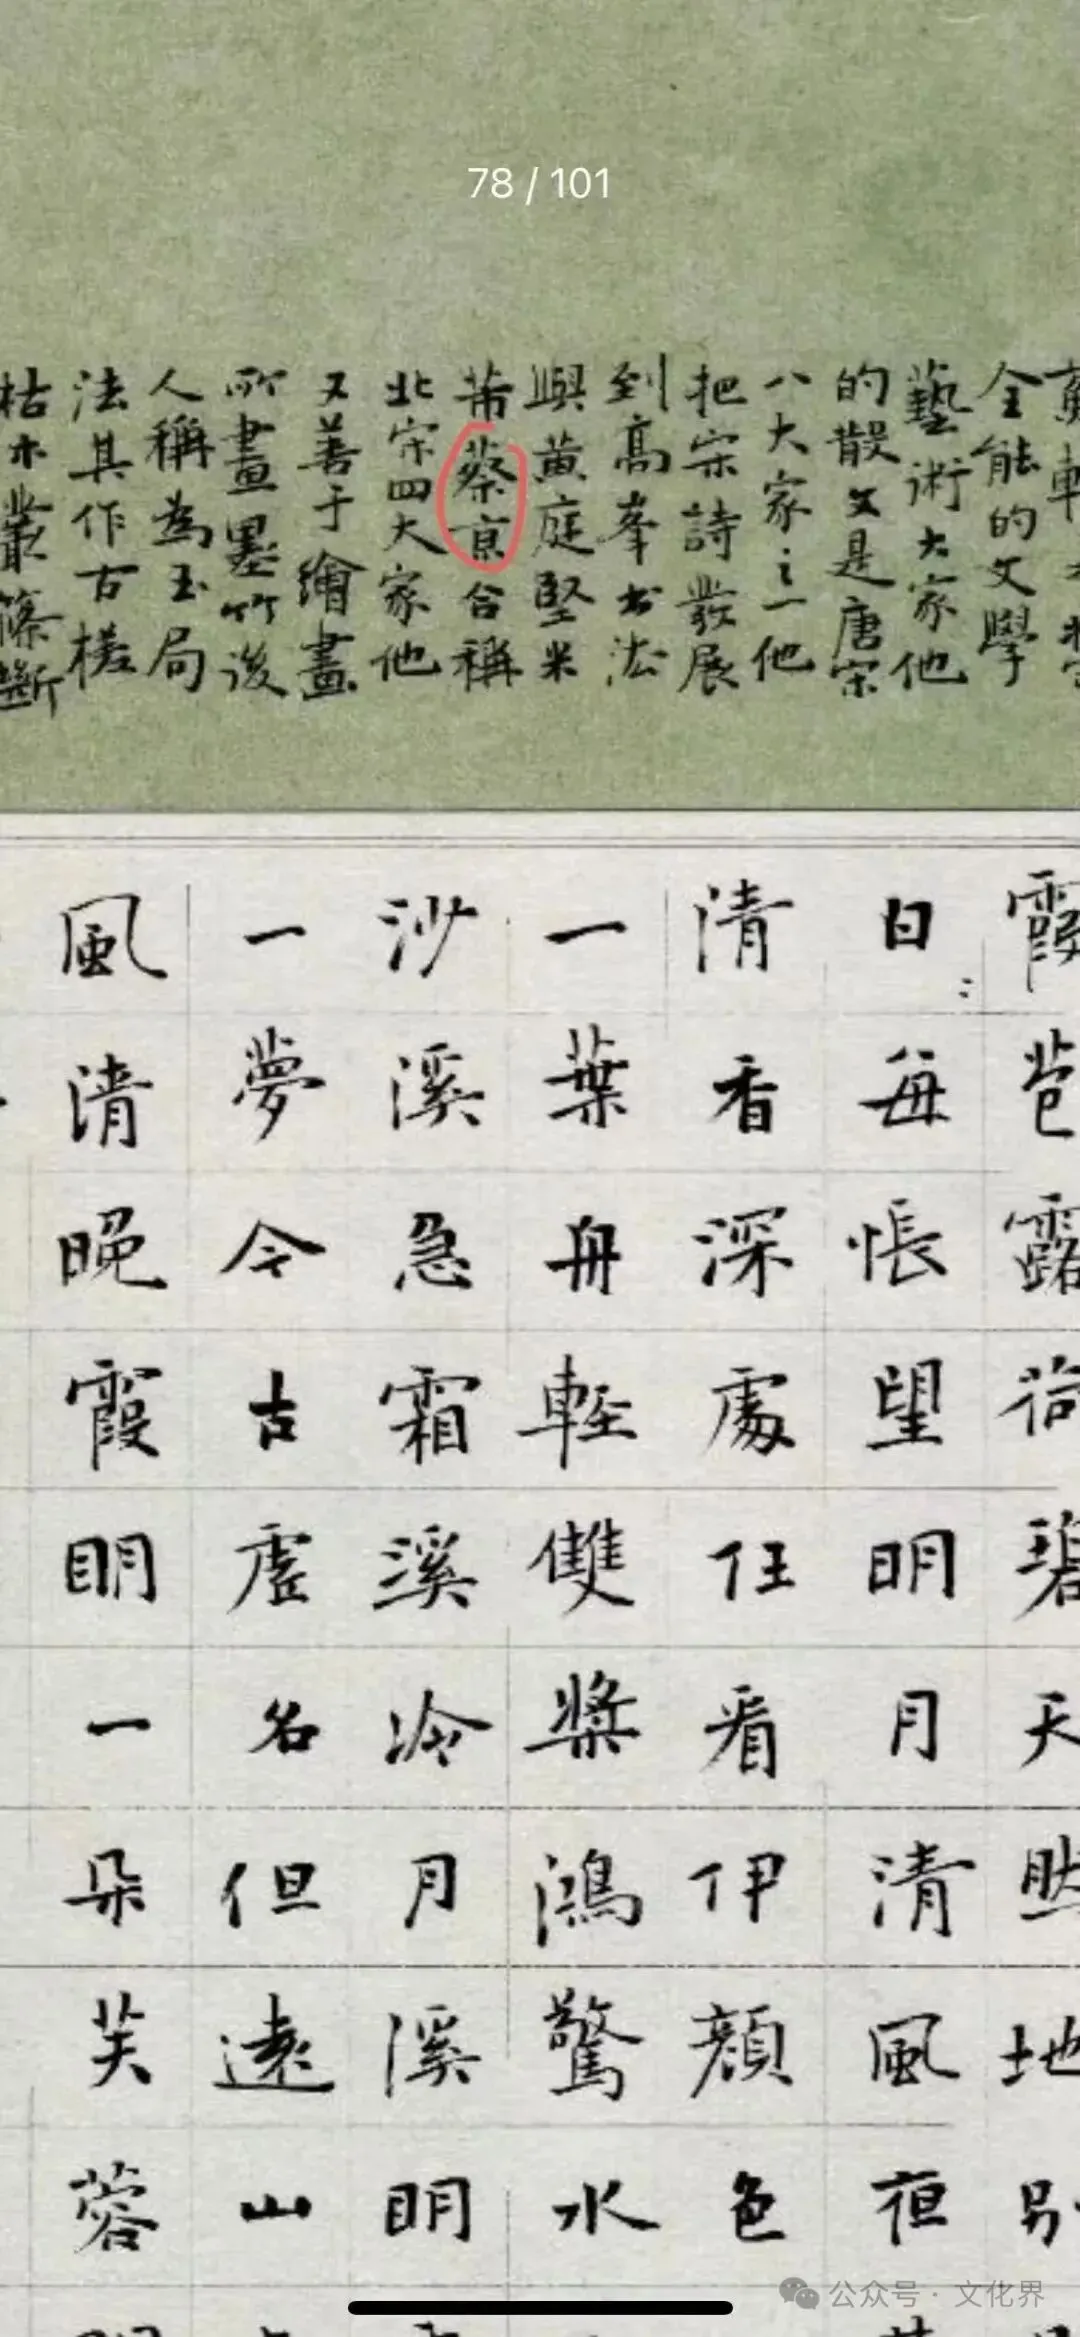 78 / 101
全能的文學
藝術大家他
的散文是唐宋
八大家之一他
把宋詩發展
到高峯书法
與黄庭堅米
芾蔡京合稱
北宋四大家他
又善于繪畫
所畫墨竹後
人稱為玉局
法其作古槎
枯木叢篠斷
霞苞露荷碧天然地别
日每悵望明月清風夜
清香深處任看伊顏色
一葉舟輕雙槳鴻驚水
沙溪急霜溪冷月溪明
一夢今古虛名但遠山
風清晚霞明一朵芙蓉
公众号 · 文化界